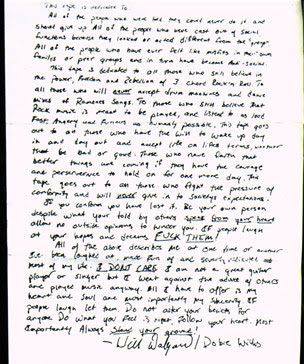 This tape is dedicated to:
All of the people who were told they could never do it and
should give up. All of the people who were cast out of social
functions because they looked or acted different than the "group"
All of the people who have ever felt like misfits in their own
families or peer groups and in turn have become Anti-social.
This tape is dedicated to all those who still believe in
the Power, Passion and Rebellion of 3 chord Rock n Roll To
all those who will never accept drum machines and dance
mixes of Ramones Songs. To those who still believe that
Rock music is meant to be played and listened to as loud
Fast, Angry and Furious as humanly possible. This tape goes
out to all those who have the will to wake up day
in and day out and accept life on it's terms, whether
that be bad or good. Those who have faith that
better things are coming if they have the courage
and perserverence to hold on for one more day. The
tape goes out to all those who fight the pressure of
conformity and will never give in to societys expectations.
If you conform you have lost it. Be your own person
despite what your told by others speak from your heart
allow no outside opinions to hinder you. If people laugh
at your hopes and dreams FUCK THEM!
All of the above describe me at one time or another
I've been laughed at, made fun of and severly ridiculed
most of my life. I DON'T CARE I am not a great guitar
player or singer but I went against the advice of others
and played music anyway. All I have to offer is my
heart and soul and most importantly my sincerity If
people laugh let them. Do not alter your beliefs for
anyone Do what you feel is right. Follow your heart. Most
importantly Always stand your ground!
- Will
Dobie Willis